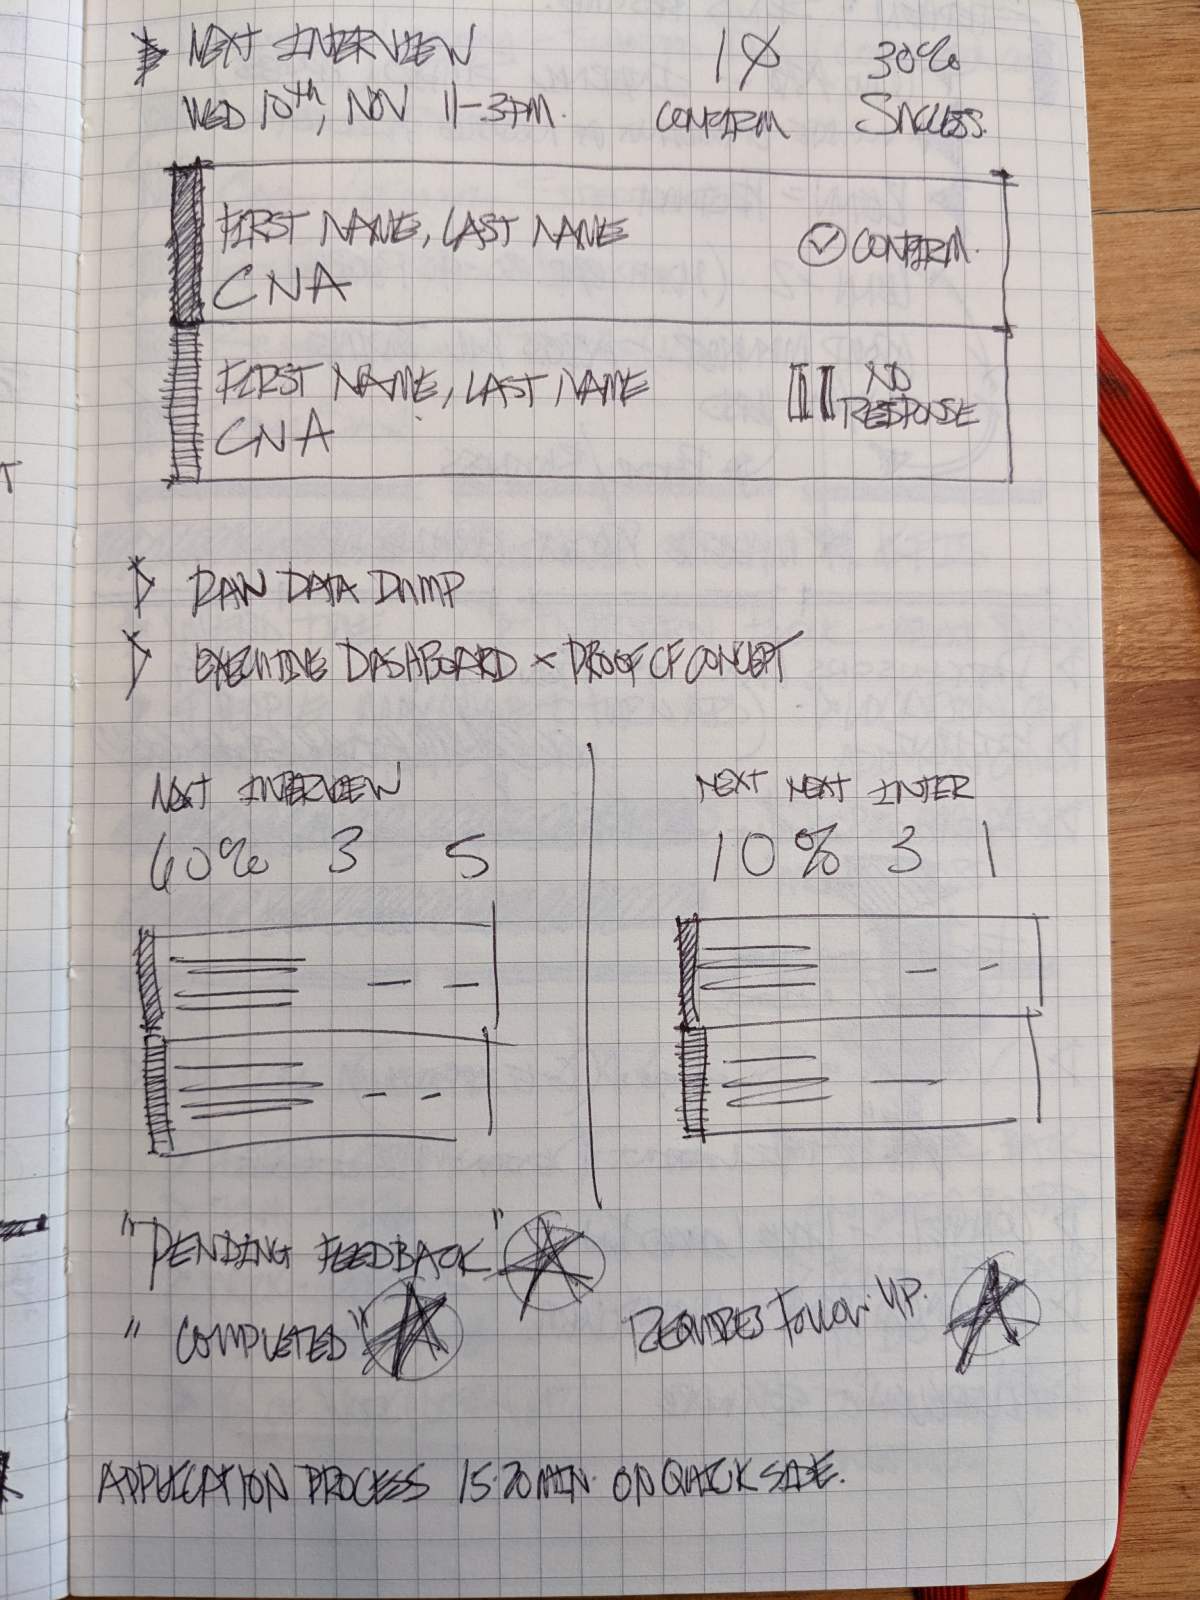 NEXT INTERVIEW 10 30%
WED 10th, NOV 11-3PM. CONFIRM SUCCESS.
FIRST NAME, LAST NAME
CONFIRM.
CNA
FIRST NAME, LAST NAME
NO
RESPONSE
CNA
RAW DATA DUMP
EXECUTIVE DASHBOARD × PROOF OF CONCEPT
NEXT INTERVIEW
60% 3 5
NEXT NEXT INTER
10% 3 1
"PENDING FEEDBACK"
"COMPLETED"
REQUIRES FOLLOW UP.
APPLICATION PROCESS 15-20 MIN. ON QUICK SIDE.